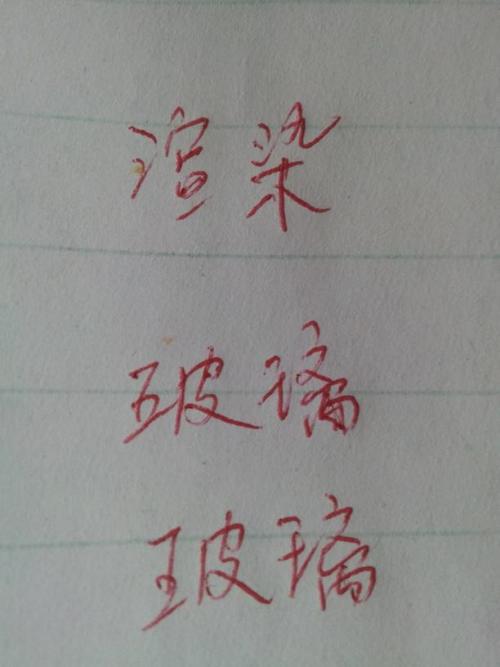 渲染
玻璃
玻璃